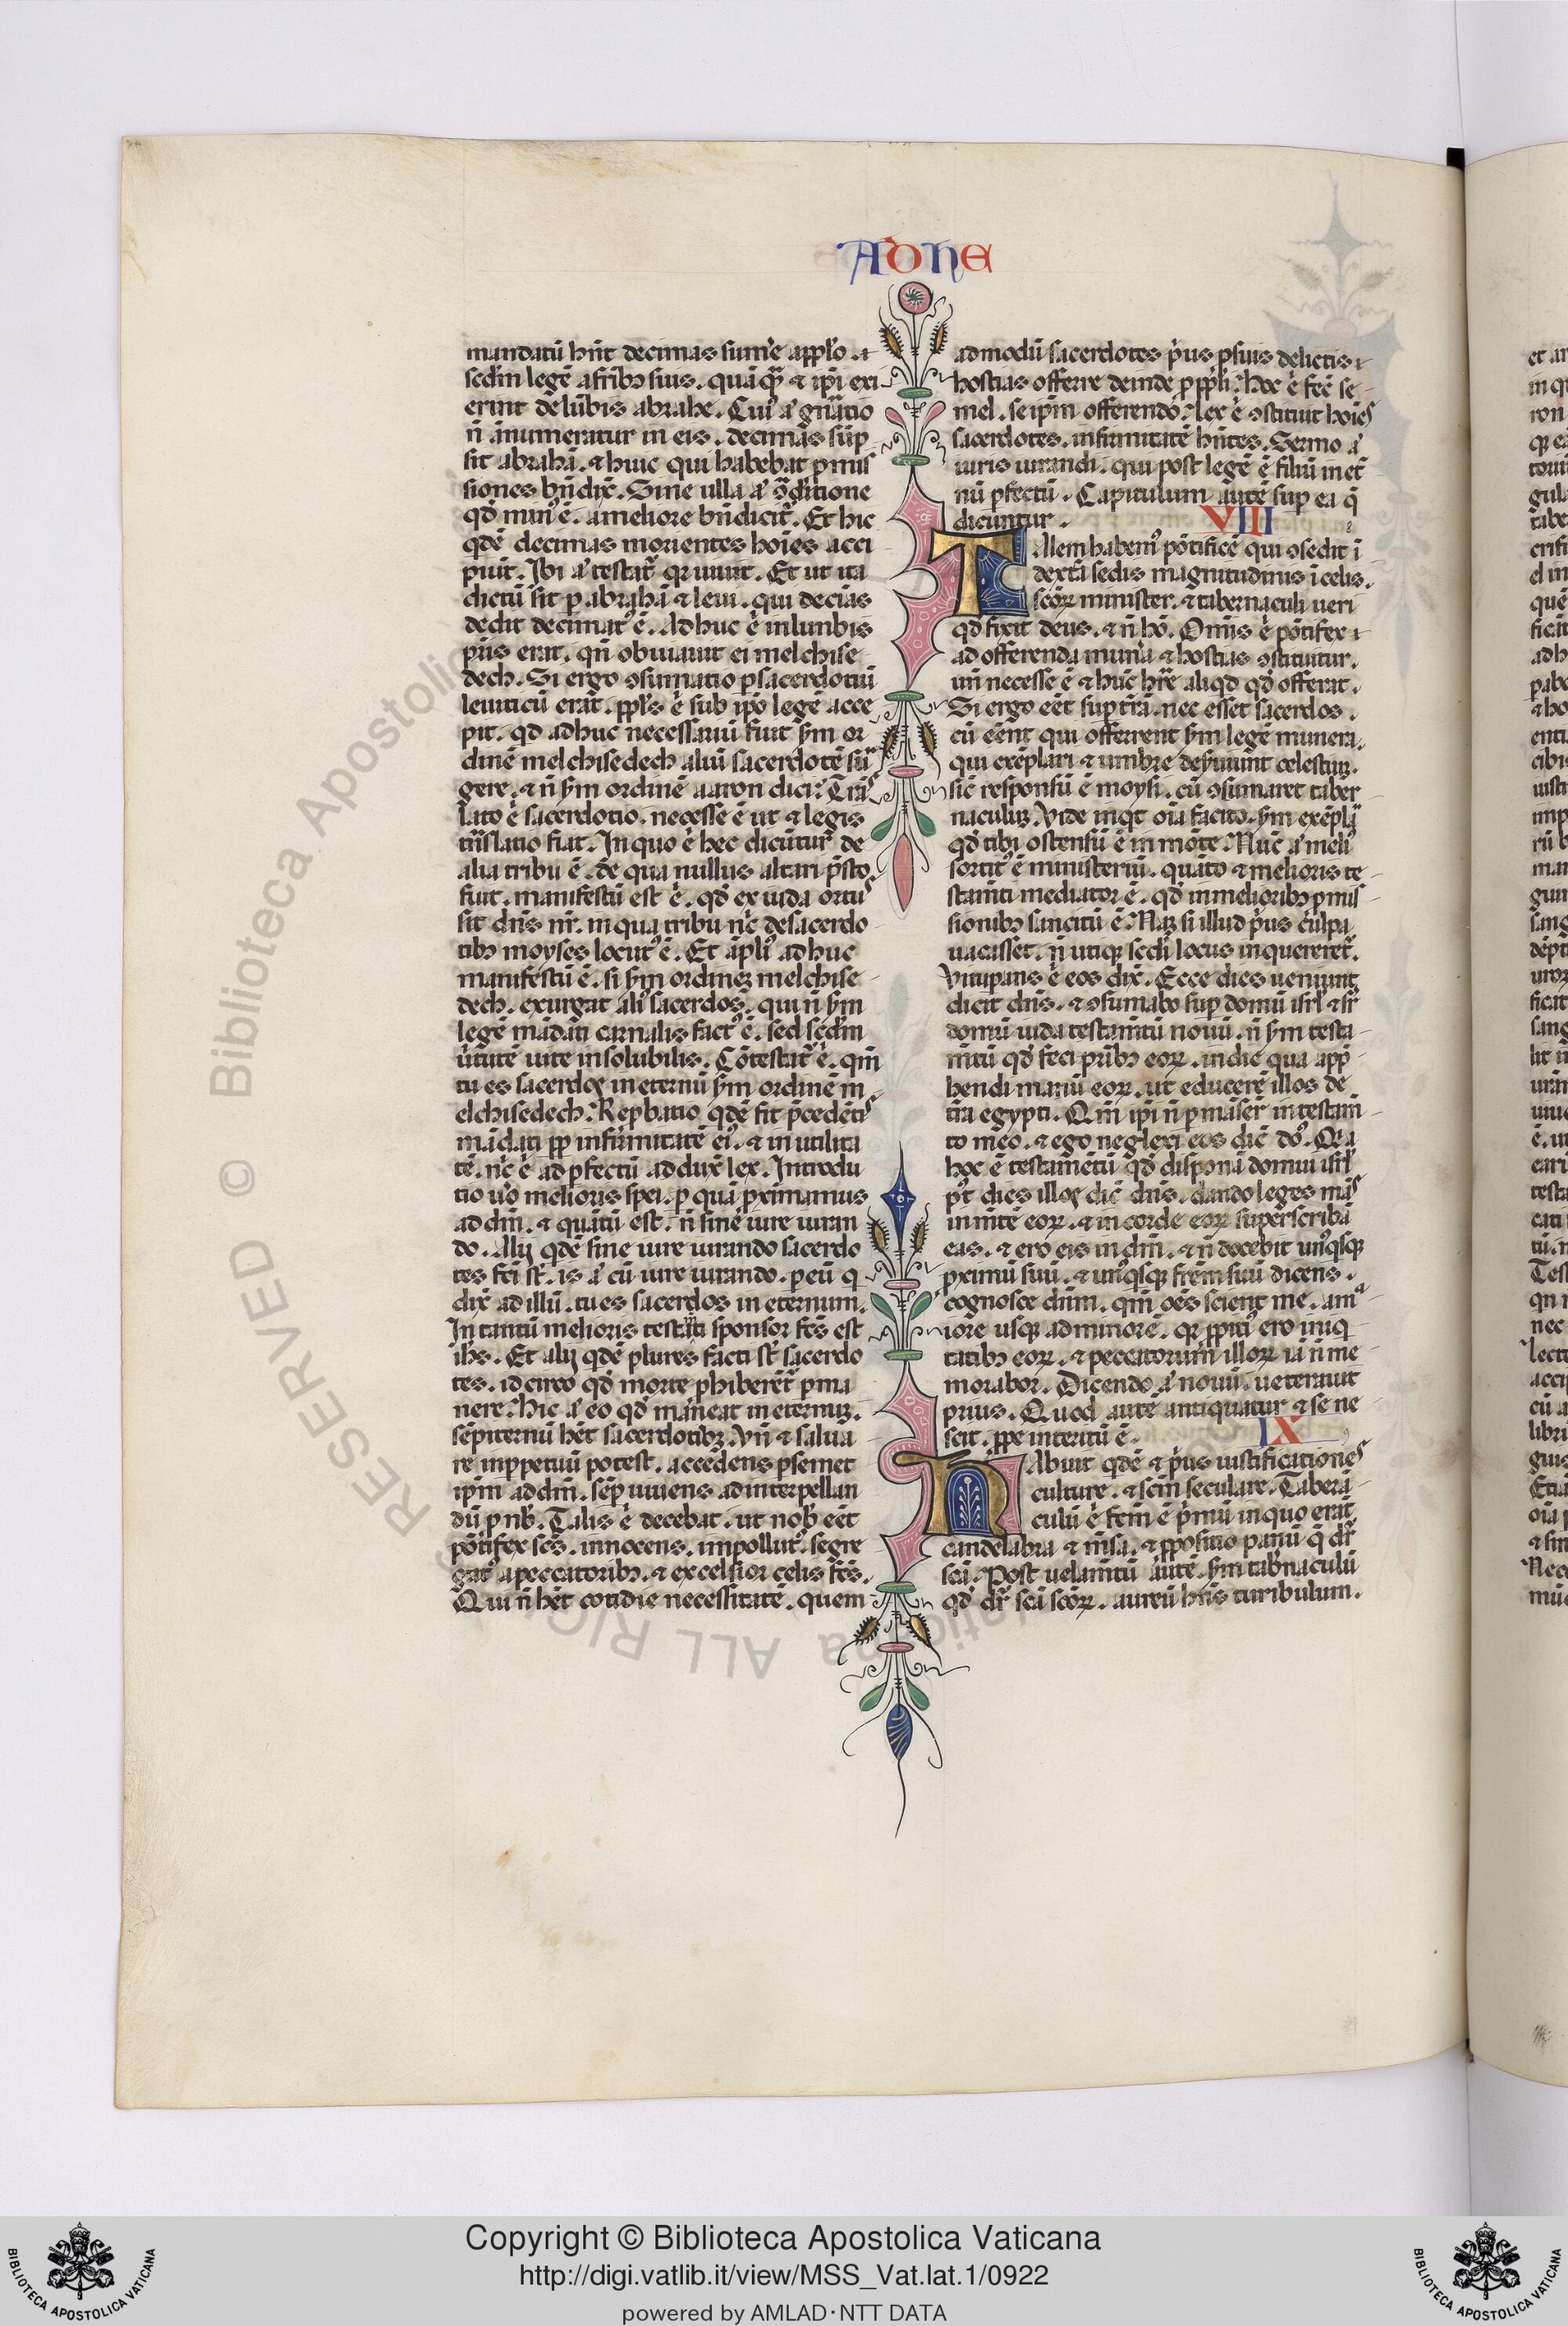 AD HE
mandatū hn̄t decimas sume͛ a pplo . a
scd̄m legē a frībꝫ suis . quāqꝫ̄ ⁊ ipi exi
erint de lūbis abrahe . Cuiꝰ aͥ gn̄atio
n̄ ānumeratur in eis . decimas sūp
sit abrahā . ⁊ huic qui habebat ꝓmis
siones bn̄dix̄ . Sine ulla aͥ ↄ̄dictione
qd̄ minꝰ ē . a meliore bn̄dicit᷑ . Et hic
qdē decimas morientes hoīes acci
piunt . Ibi aͥ testat᷑ qꝛ uiuit . Et ut ita
dictū sit ꝑ abrahā ⁊ leui . qui decīas
dedit decimatꝰ ē . Adhuc ē in lunbis
pr̄is erat . qn̄ obuiauit ei melchise
dech . Si ergo ↄsūmatio ꝑ sacerdotiū
leuiticū erat . ppl̄s ē sub ipō legē acce
pit . qd̄ adhuc necessariū fuit ẜm or
dinē melchisedech aliū sacerdotē sur
gere . ⁊ n̄ ẜm ordinē aaron dici : Trās
lato ē sacerdotio . necesse ē ut ⁊ legis
trāslatio fiat . In quo ē hec dicūtur de
alia tribu ē . de qua nullus altari p̄sto
fuit . manifestū est ē . qd̄ ex iuda ortꝰ
sit dn̄s nr̄ . in qua tribu nc̄ de sacerdo
tibꝫ moyses locutꝰ ē . Et āpliꝰ adhuc
manifestū ē . si ẜm ordineꝫ melchise
dech . exurgat aliꝰ sacerdos . qui n̄ ẜm
legē mādati carnalis factꝰ ē . sed scd̄m
ūtutē uite insolubilis . Cōtestat᷑ ē . qm̄
tu es sacerdos in eternū ẜm ordinē m
elchisedech : Reꝓbatio qdē fit p̄cedētis
mādati ꝓp infirmitatē eiꝰ . ⁊ inutilita
tē . nc̄ ē ad ꝑfectū addux̄ lex . Introdu
tio u̾o melioris spei . ꝑ quā ꝓximamus
ad dm̄ . ⁊ quātū est . n̄ sine iure iuran
do . Alij qdē sine iure iurando sacerdo
tes fc̄i st̄ . is aͥ cū iure iurando . ꝑ eū q
dix̄ ad illū . tu es sacerdos in eternum .
In tantū melioris testāti sponsor fc̄s est
ih̄s . Et alij qdē plures facti st̄ sacerdo
tes . idcirco qd̄ morte ꝓhiberēt᷑ ꝑma
nere : hic aͥ eo qd̄ maneat in eternuꝫ .
sēpiternū h̄et sacerdotiuꝫ . Vn̄ ⁊ salua
re in ꝑpetuū potest . accedens ꝑ semet
ip̄m ad dm̄ . sēp uiuens ad interpellan
dū ꝓ nob̄ . Talis ē decebat . ut nob̄ eēt
pōtifex sc̄s . innocens . impollutꝰ . segre
gatꝰ a peccatoribꝫ . ⁊ excelsior celis fc̄s .
Qui n̄ h̄et cotidie necessitatē . quem
admodū sacerdotes p̄us ꝓ suis delictis
hostias offerre deinde ꝓ ppl̄i : hoc ē fec̄ se
mel . seip̄m offerendo : Lex ē ↄstituit hoīes
sacerdotes . infirmitatē hn̄tes . Sermo aͥ
iuris iurandi . qui post legē ē filiū inet̄
nū ꝑfectū . Capitulum autē suꝑ ea q̄
dicuntur . VIII
Talem habemꝰ pōtificē qui ↄsedit ī
dextā sedis magnitudinis ī celis .
sc̄oꝝ minister . ⁊ tabernaculi ueri
qd̄ fixit deus . ⁊ n̄ hō . Omīs ē pōtifex
ad offerenda munīa ⁊ hostias ↄstituitur .
un̄ necesse ē ⁊ huc hr̄e aliqd qd̄ offerat .
Si ergo eēt suꝑ trā . nec esset sacerdos .
cū eēnt qui offerrent ẜm legē munera .
qui exēplari ⁊ umbre des̾uiunt celestiuꝫ .
sic̄ responsū ē moysi . cū ↄsūmaret taber
naculuꝫ . Vide inqt oīa facito . ẜm exēplar
qd̄ tibi ostensū ē in mōte . Nūc aͥ meliꝰ
sortitꝰ ē ministeriū . quāto ⁊ melioris te
stam̄ti mediator ē . qd̄ in melioribꝫ ꝓmis
sionibꝫ sancitū ē : Naꝫ si illud p̄us culpa
uacasset . n̄ utiqꝫ scd̄i locus inquereret᷑ .
Vituꝑans ē eos dix̄ . Ecce dies ueniunt
dicit dn̄s . ⁊ ↄsumabo suꝑ domū isrl̄ ⁊ sr̄
domū iuda testam̄tū nouū . n̄ ẜm testa
m̄tū qd̄ feci pr̄ibꝫ eoꝝ . in die qua app̄
hendi manū eoꝝ . ut educerē illos de
trā egypti . Qm̄ ipi n̄ ꝑmāser̄ in testam̄
to meo . ⁊ ego neglexi eos dic̄ dō̄ . Qꝛ
hoc ē testamētū qd̄ disponā domui isrl̄
pꝰt dies illos dic̄ dn̄s . dando leges meas
in m̄tē eoꝝ . ⁊ in corde eoꝝ superscribā
eas . ⁊ ero eis in dm̄ . ⁊ n̄ docebit unꝰqsqꝫ
ꝓximū suū . ⁊ unꝰqsqꝫ fr̄em suū dicens .
cognosce dn̄m . qm̄ oēs scient me . a m
iore usqꝫ ad minorē . qꝛ ꝓpitiꝰ ero iniq
tatibꝫ eoꝝ . ⁊ peccatorum illoꝝ iā n̄ me
morabor . Dicendo aͥ nouū . ueterauit
prius . Quod autē antiquatur ⁊ sene
scit . ꝓpe interitū ē . IX
Habuit qdē ⁊ p̄us iustificationes
culture . ⁊ sc̄m seculare . Tabernā
culū ē fc̄m ē p̄mū in quo erāt
candelabra ⁊ m̄sa . ⁊ ꝓpositio panū q̄ dr̄
sc̄ā . Post uelam̄tū autē . ẜm tab̾naculū
qd̄ dr̄ sc̄ā sc̄oꝝ . aureū hn̄s turibulum .
Copyright © Biblioteca Apostolica Vaticana
http://digi.vatlib.it/view/MSS_Vat.lat.1/0922
powered by AMLAD·NTT DATA